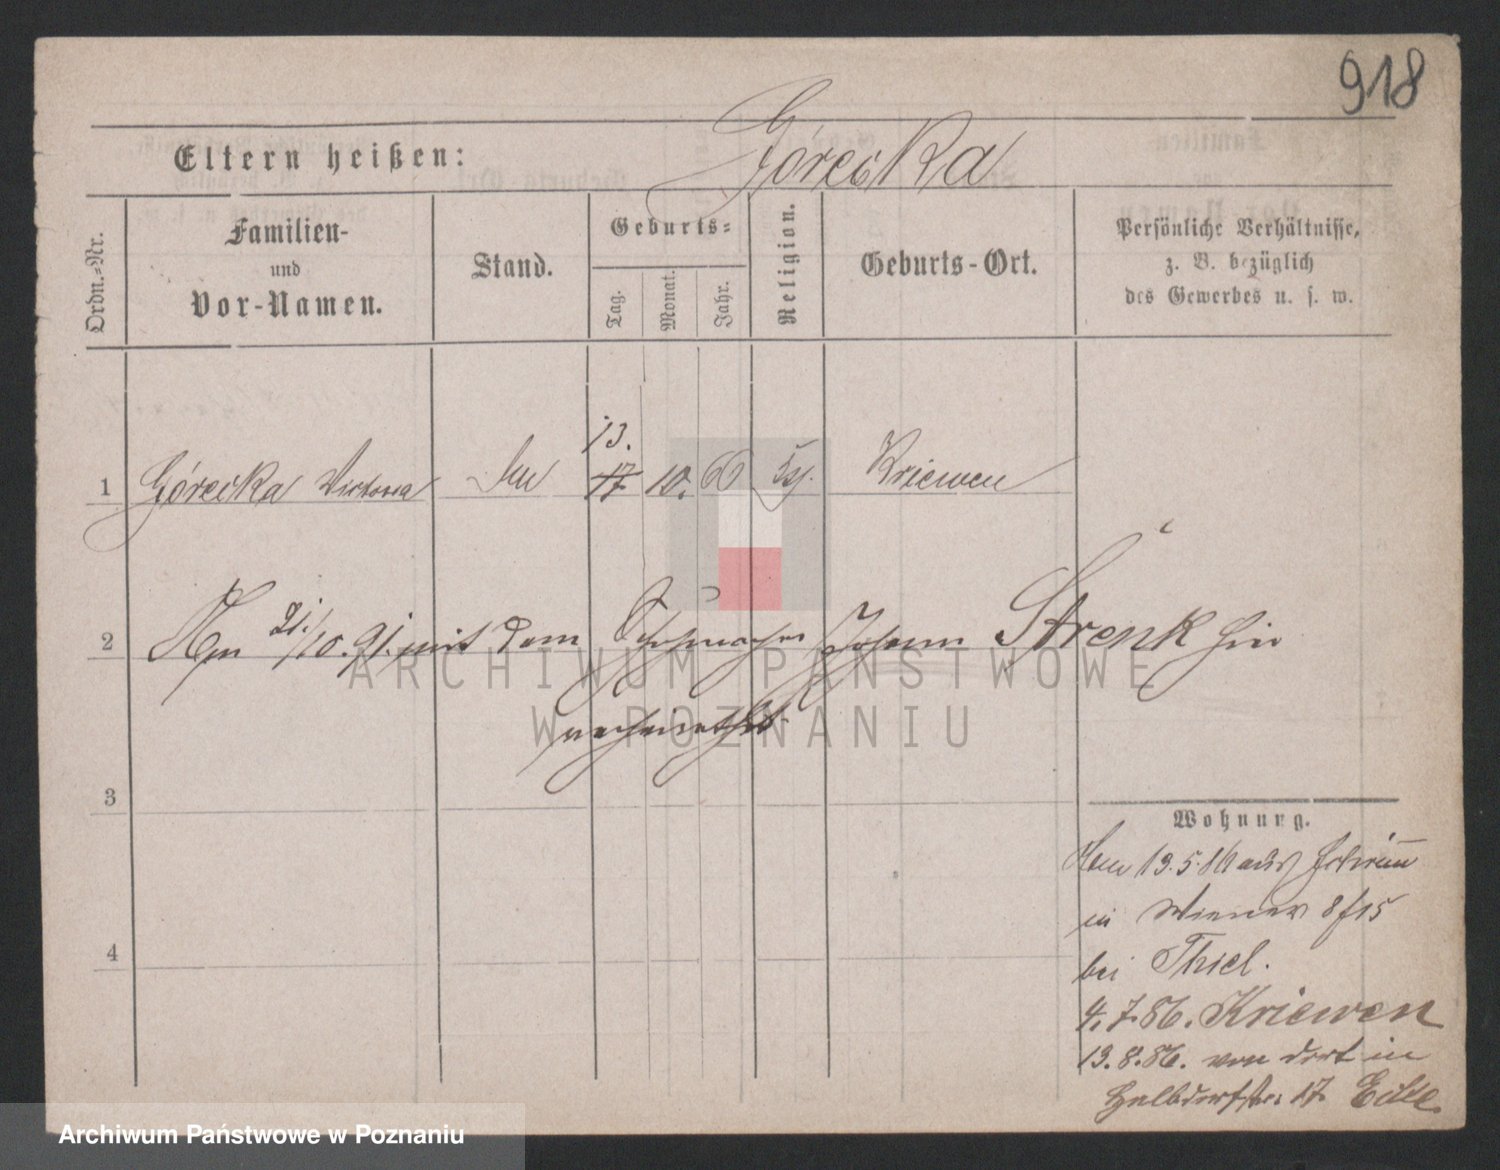 918
Górecka
Eltern heißen:
Ordn.-Nr.
Familien-
und
Vor-Namen.
Stand.
Geburts-
Tag.
Monat.
Jahr.
Religion.
Geburts-Ort.
Persönliche Verhältnisse,
z. B. bezüglich
des Gewerbes u. s. w.
13.
1 Górecka Victoria 17 10. 66 Kriewen
2 Am 21./10. 91. mit dem Johann Strenk hier
verheirathet.
3
Wohnung.
13.5.86 aus Schrimm
in Wiener 8/15
4
bei Thiel.
4.7.86. Kriewen
13.8.86. von dort in
Halbdorfstr. 17
ARCHIWUM PAŃSTWOWE
W POZNANIU
Archiwum Państwowe w Poznaniu